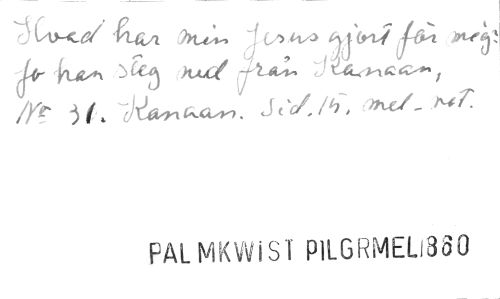 Hvad har min Jesus gjort för mig?
Jo han steg ned från Kanaan,
No 31. Kanaan. Sid. 15. mel-not.
PALMKWiST PILGRMEL1860